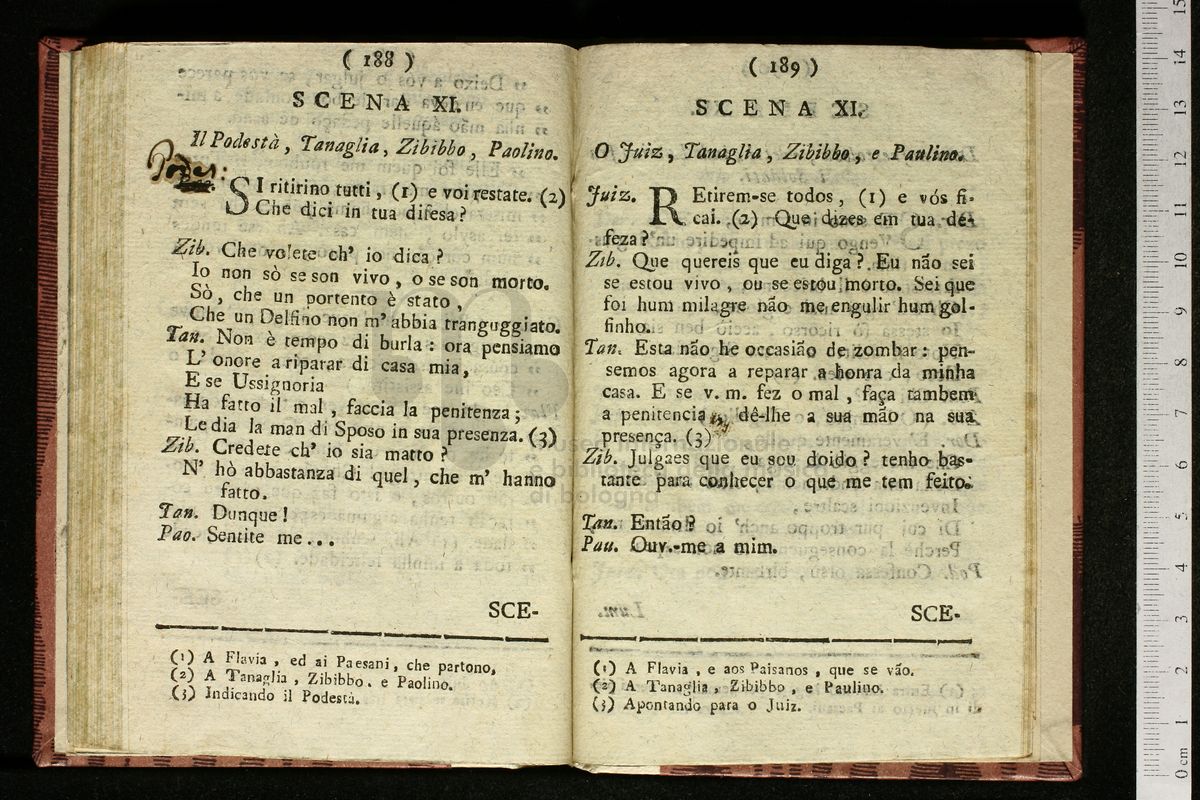 ( 188 )
SCENA XI.
Il Podestà, Tanaglia, Zibibbo, Paolino.
Podes:
SI ritirino tutti, (1) e voi restate. (2)
Che dici in tua difesa?
Zib. Che volete ch' io dica?
Io non sò se son vivo, o se son morto.
Sò, che un portento è stato,
Che un Delfino non m' abbia tranguggiato.
Tan. Non è tempo di burla: ora pensiamo
L' onore a riparar di casa mia,
E se Ussignoria
Ha fatto il mal, faccia la penitenza;
Le dia la man di Sposo in sua presenza. (3)
Zib. Credete ch' io sia matto?
N' hò abbastanza di quel, che m' hanno
fatto.
Tan. Dunque!
Pao. Sentite me...
SCE-
(1) A Flavia, ed ai Paesani, che partono,
(2) A Tanaglia, Zibibbo, e Paolino.
(3) Indicando il Podestà.
( 189 )
SCENA XI.
O Juiz, Tanaglia, Zibibbo, e Paulino.
Juiz. REtirem-se todos, (1) e vós fi-
cai. (2) Que dizes em tua de-
feza?
Zib. Que quereis que eu diga? Eu não sei
se estou vivo, ou se estou morto. Sei que
foi hum milagre não me engulir hum gol-
finho.
Tan. Esta não he occasião de zombar: pen-
semos agora a reparar a honra da minha
casa. E se v. m. fez o mal, faça tambem
a penitencia, dê-lhe a sua mão na sua
presença. (3)
Zib. Julgaes que eu sou doido? tenho bas-
tante para conhecer o que me tem feito.
Tan. Então?
Pau. Ouv.-me a mim.
SCE-
(1) A Flavia, e aos Paisanos, que se vão.
(2) A Tanaglia, Zibibbo, e Paulino.
(3) Apontando para o Juiz.
15
14
13
12
11
10
9
8
7
6
5
4
3
2
1
0 cm